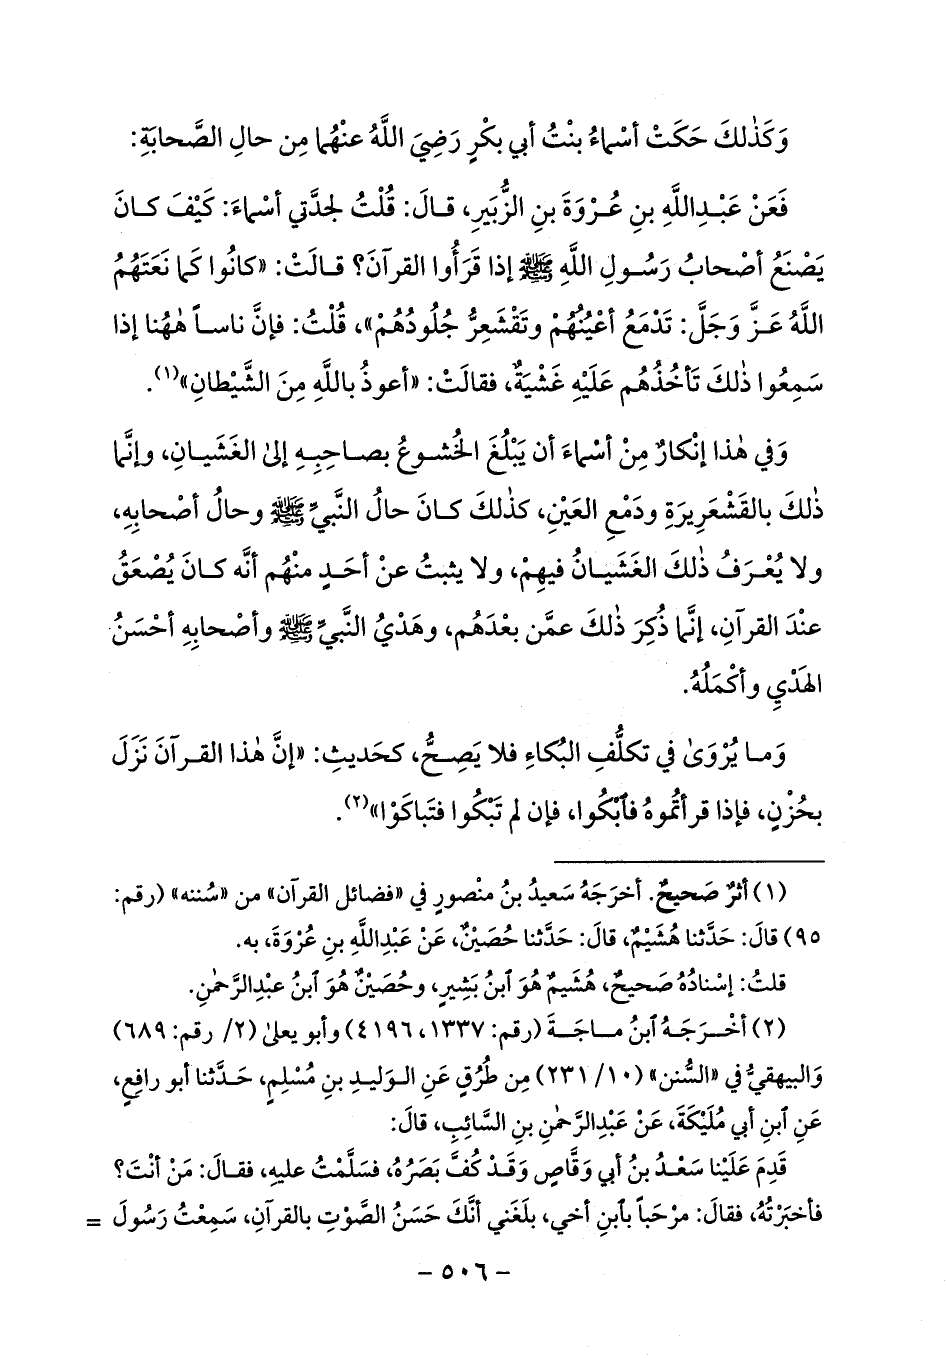 وَكَذٰلكَ حَكَتْ أسْماءُ بنْتُ أبي بكْرٍ رَضِيَ اللَّهُ عنْهُما مِن حالِ الصَّحابَةِ:
فَعَنْ عَبْدِاللَّهِ بنِ عُرْوَةَ بنِ الزُّبَيرِ، قالَ: قُلْتُ لجدَّتي أسْماءَ: كَيْفَ كانَ
يَصْنَعُ أصْحابُ رَسُولِ اللَّهِ ﷺ إذا قَرَأُوا القرآنَ؟ قالَتْ: «كانُوا كَما نَعَتَهُمُ
اللَّهُ عَزَّ وَجَلَّ: تَدْمَعُ أعْيُنُهُمْ وتَقْشَعِرُّ جُلُودُهُمْ»، قُلْتُ: فإنَّ ناساً هٰهُنا إذا
سَمِعُوا ذٰلكَ تَأخُذُهُم عَلَيْهِ غَشْيَةٌ، فقالَتْ: «أعوذُ باللَّهِ مِنَ الشَّيْطانِ»(١).
وَفي هٰذا إنْكارٌ مِنْ أسْماءَ أن يَبْلُغَ الخُشوعُ بصاحِبِهِ إلىٰ الغَشَيانِ، وإنَّما
ذٰلكَ بالقَشْعَرِيرَةِ ودَمْعِ العَيْنِ، كذٰلكَ كانَ حالُ النَّبيِّ ﷺ وحالُ أصْحابِهِ،
ولا يُعْرَفُ ذٰلكَ الغَشَيانُ فيهِمْ، ولا يثبتُ عنْ أحَدٍ منْهُم أنَّه كانَ يُصْعَقُ
عنْدَ القرآنِ، إنَّما ذُكِرَ ذٰلكَ عمَّن بعْدَهُم، وهَدْيُ النَّبيِّ ﷺ وأصْحابِهِ أحْسَنُ
الهَدْيِ وأكْمَلُهُ.
وَما يُرْوَىٰ في تكلُّفِ البُكاءِ فلا يَصِحُّ، كحَديثِ: «إنَّ هٰذا القرآنَ نَزَلَ
بحُزْنٍ، فإذا قرأتُموهُ فٱبْكُوا، فإن لم تَبْكُوا فتَباكَوْا»(٢).
(١) أثرٌ صَحيحٌ. أخرَجَهُ سَعيدُ بنُ منْصورٍ في «فضائل القرآن» من «سُننه» (رقم:
٩٥) قالَ: حَدَّثنا هُشَيْمٌ، قالَ: حَدَّثنا حُصَيْنٌ، عَنْ عَبْدِاللَّهِ بنِ عُرْوَةَ، به.
قلتُ: إسْنادُهُ صَحيحٌ، هُشَيمٌ هُوَ ٱبنُ بَشيرٍ، وحُصَيْنٌ هُوَ ٱبنُ عبْدِالرَّحمٰنِ.
(٢) أخْرَجَهُ ٱبنُ ماجَةَ (رقم: ١٣٣٧، ٤١٩٦) وأبو يعلىٰ (٢/ رقم: ٦٨٩)
وَالبيهقيُّ في «السُّنن» (١٠/ ٢٣١) مِن طُرُقٍ عَنِ الوَليدِ بنِ مُسْلِمٍ، حَدَّثنا أبو رافِعٍ،
عَنِ ٱبنِ أبي مُلَيْكَةَ، عَنْ عَبْدِالرَّحمٰنِ بنِ السَّائِبِ، قالَ:
قَدِمَ عَلَيْنا سَعْدُ بنُ أبي وَقَّاصٍ وَقَدْ كُفَّ بَصَرُهُ، فسَلَّمْتُ عليهِ، فقالَ: مَنْ أنْتَ؟
فأخبَرْتُهُ، فقالَ: مرْحَباً بٱبنِ أخي، بلَغَني أنَّكَ حَسَنُ الصَّوْتِ بالقرآنِ، سَمِعْتُ رَسُولَ =
- ٥٠٦ -